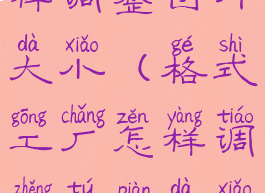 样调整图片
dà xiǎo gé shì
大小（格式
gōng chǎng zěn yàng tiáo
工厂怎样调
zhěng tú piàn dà xiǎo